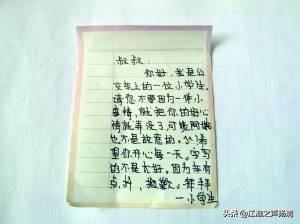 叔叔:
你好,我是公
交车上的一位小学生。
请您不要因为一件小
事情,就把你的好心
情就弄没了,可能阿姨
也不是故意的,
望你开心每一天,字写
的不是太好。因为车有
点抖,抱歉。拜拜
小学生
头条 @江淮之声扬州